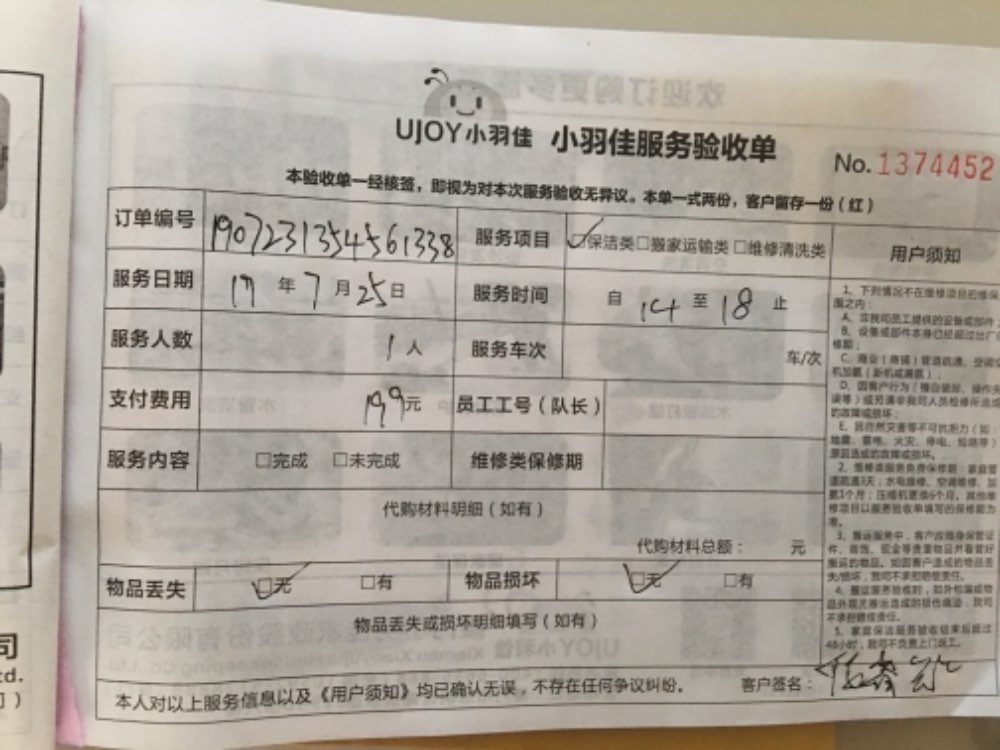 UJOY小羽佳 小羽佳服务验收单
No. 1374452
本验收单一经核签，即视为对本次服务验收无异议。本单一式两份，客户留存一份（红）
订单编号 190723135456 1338 服务项目 ☑保洁类□搬家运输类□维修清洗类 用户须知
服务日期 19年7月25日 服务时间 自14至18止
服务人数 1人 服务车次 车/次
支付费用 199元 员工工号（队长）
服务内容 □完成 □未完成 维修类保修期
代购材料明细（如有）
代购材料总额： 元
物品丢失 ☑无 □有 物品损坏 ☑无 □有
物品丢失或损坏明细填写（如有）
本人对以上服务信息以及《用户须知》均已确认无误，不存在任何争议纠纷。 客户签名：
1、下列情况不在维修项目的维保
围之内：
A、非我司员工提供的设备或部件
B、设备或部件本身已经超过出厂
修期；
C、商业（商铺）管道疏通、空调
机加氨（新机或漏氨）；
D、因客户行为（擅自装卸、操作失
误等）或另请非我司人员检修所造成
的故障或损坏；
E、因自然灾害等不可抗拒力（如：
地震、雷电、火灾、停电、短路等）
原因造成的故障或损坏。
2、维修类服务免费保修期：家庭管
道疏通3天；水电维修、空调维修、加
氨1个月；压缩机更换6个月。其他维
修项目以服务验收单填写的保修期为
准。
3、搬运服务中，客户应随身保管证
件、首饰、现金等贵重物品并看管好
搬运的物品。如因客户造成的物品丢
失/损坏，我司不承担赔偿责任。
4、搬运服务验收时，如外包装或物
品外观无搬运造成的损伤痕迹，我司
不承担赔偿责任。
5、家庭保洁服务验收结束后超过
48小时，我司不负责上门返工。
司
td.